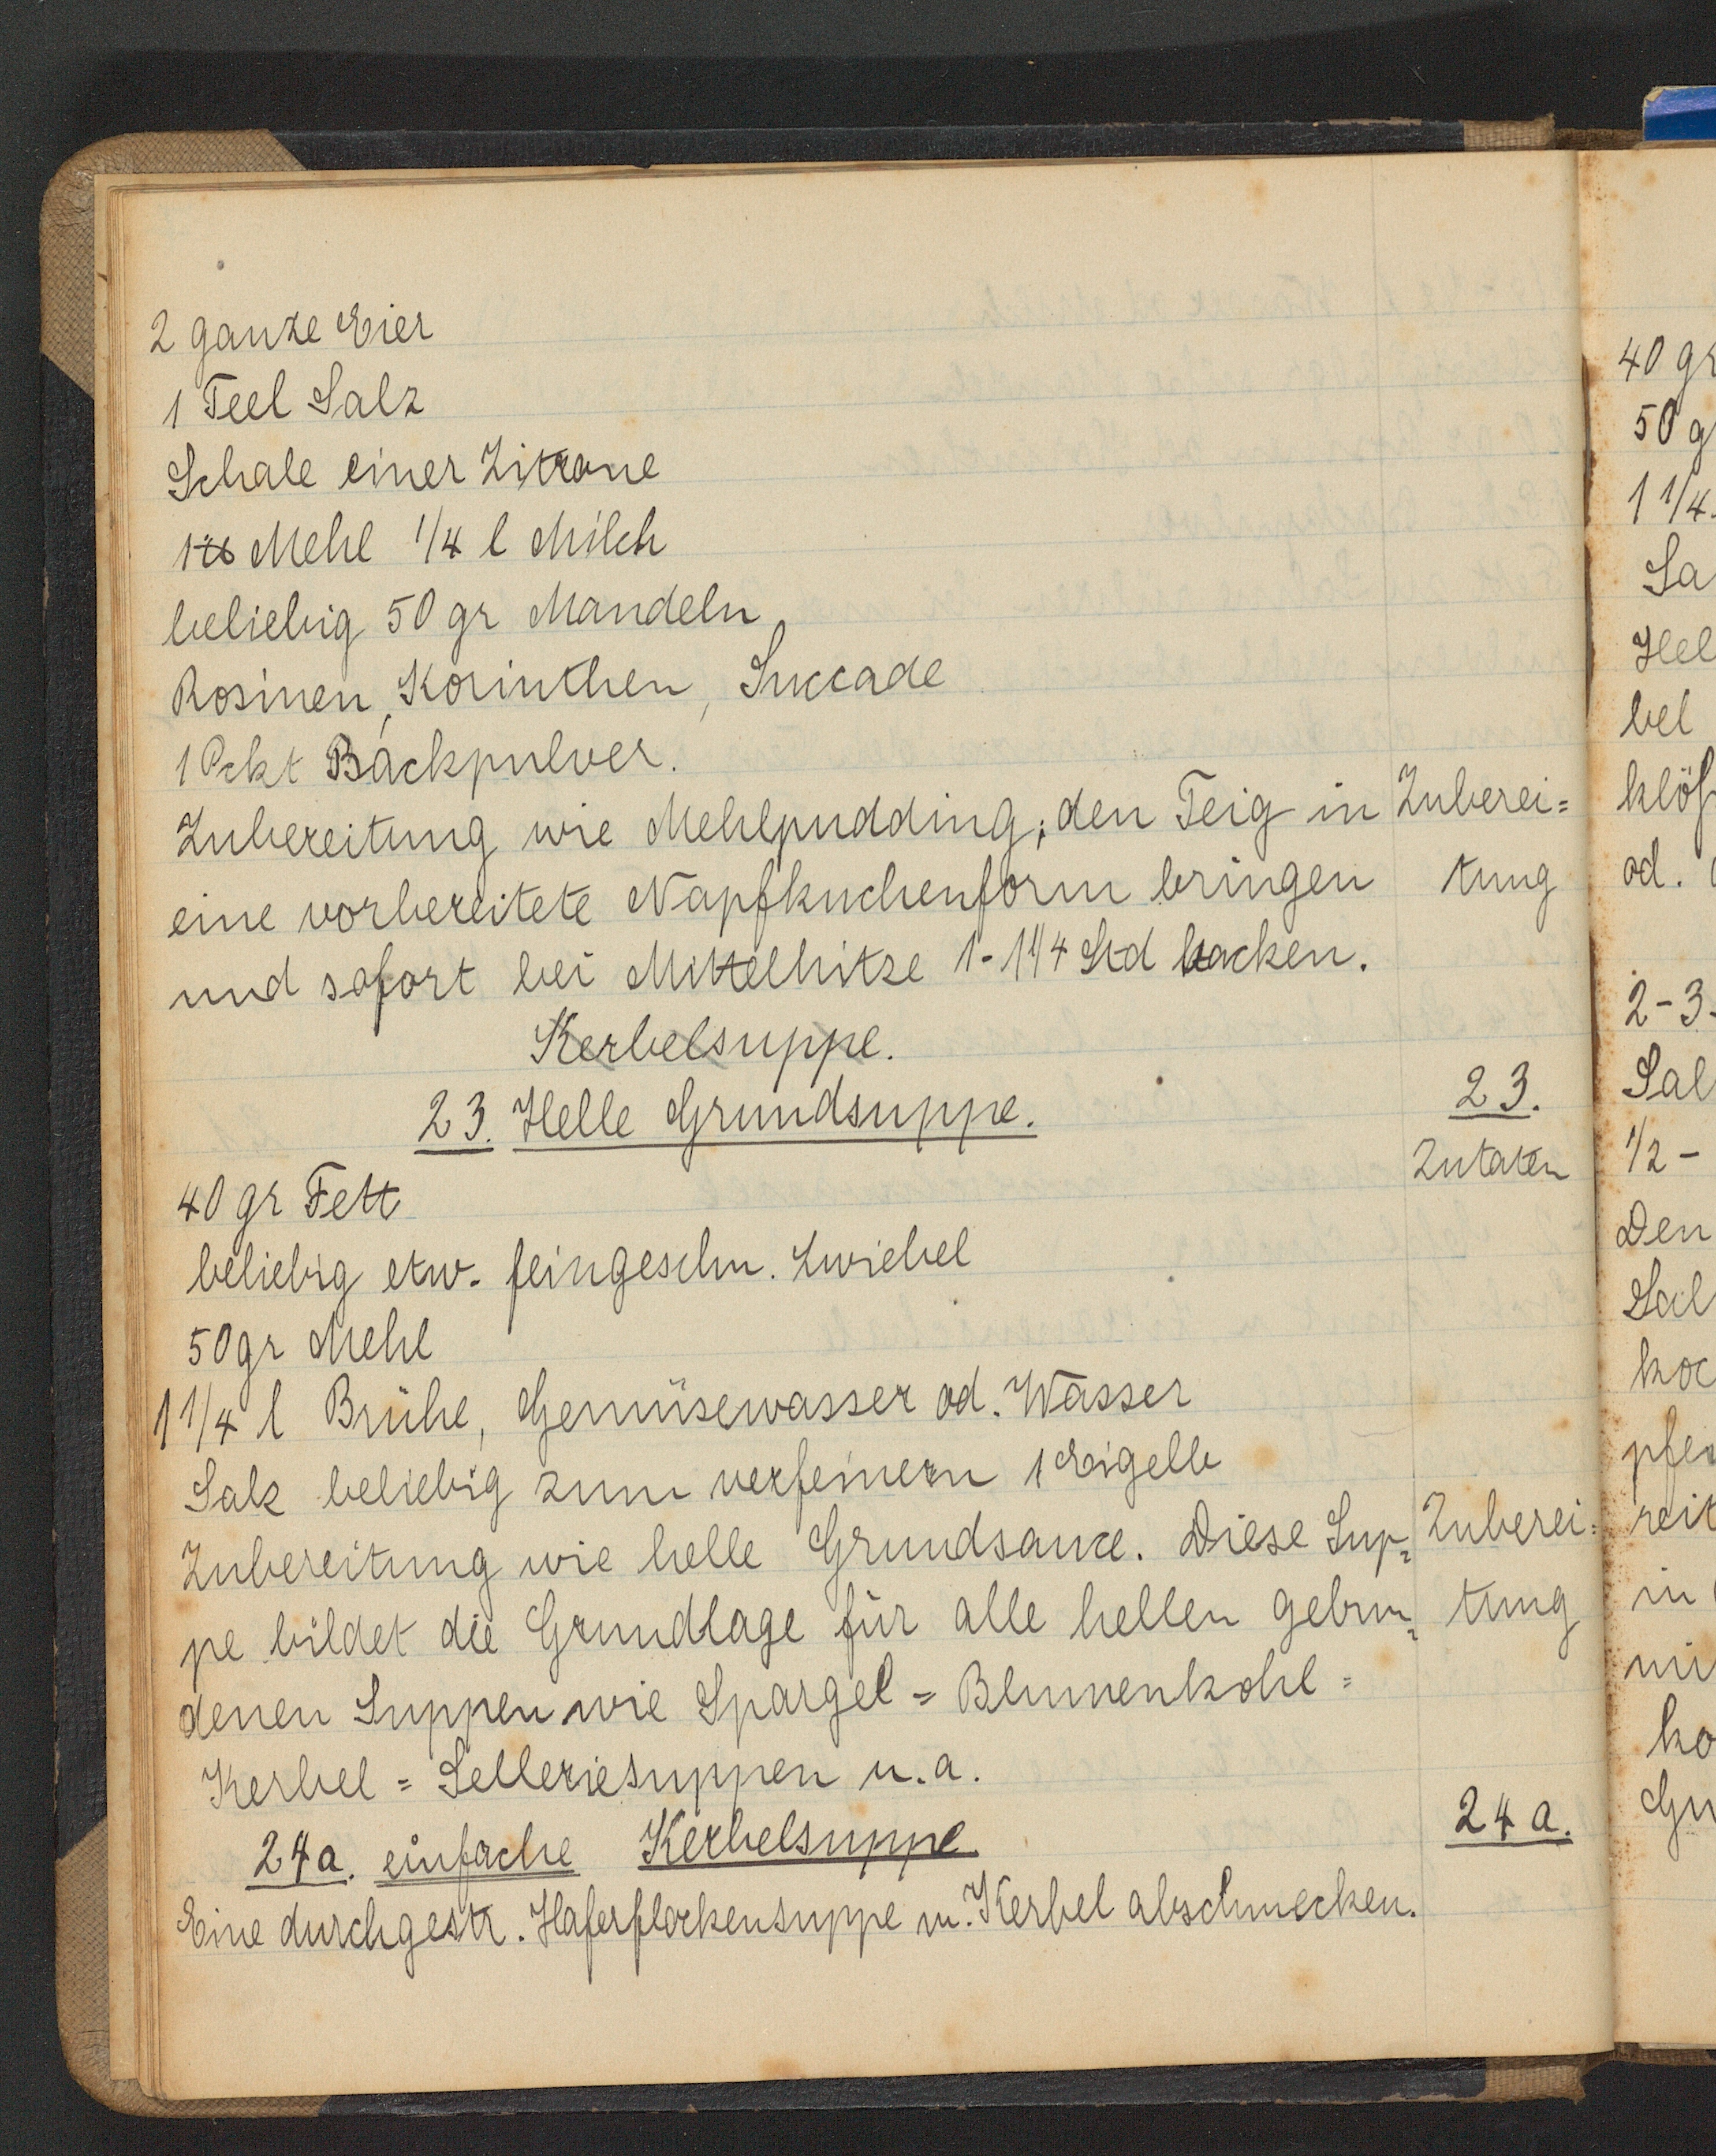 2 ganze Eier
1 Teel Salz
Schale einer Zitrone
1 ℔ Mehl 1/4 l Milch
beliebig 50 gr Mandeln,
Rosinen, Korinthen, Succade
1 Pckt Backpulver.
Zubereitung wie Mehlpudding; den Teig in Zuberei=
eine vorbereitete Napfkuchenform bringen tung
und sofort bei Mittelhitze 1-1 1/4 Std backen.
Kerbelsuppe.
23. Helle Grundsuppe. 23.
Zutaten
40 gr Fett
beliebig etw. feingeschn. Zwiebel
50 gr Mehl
1 1/4 l Brühe, Gemüsewasser od. Wasser
Salz beliebig zum verfeinern 1 Eigelb
Zubereitung wie helle Grundsauce. Diese Sup= Zuberei=
pe bildet die Grundlage für alle hellen gebun= tung
denen Suppen wie Spargel = Blumenkohl =
Kerbel = Selleriesuppen u. a.
24a. einfache Kerbelsuppe 24 a.
Eine durchgestr. Haferflockensuppe m. Kerbel abschmecken.
40 gr
50 g
1 1/4
Sa
Hel
bel
klöß
od.
2-3
Sal
1/2 -
Den
Sal
koc
pfe
reit
in
mi
ko